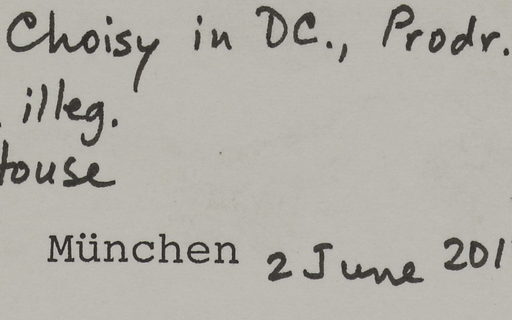 Choisy in DC., Prodr.
illeg.
München 2 June